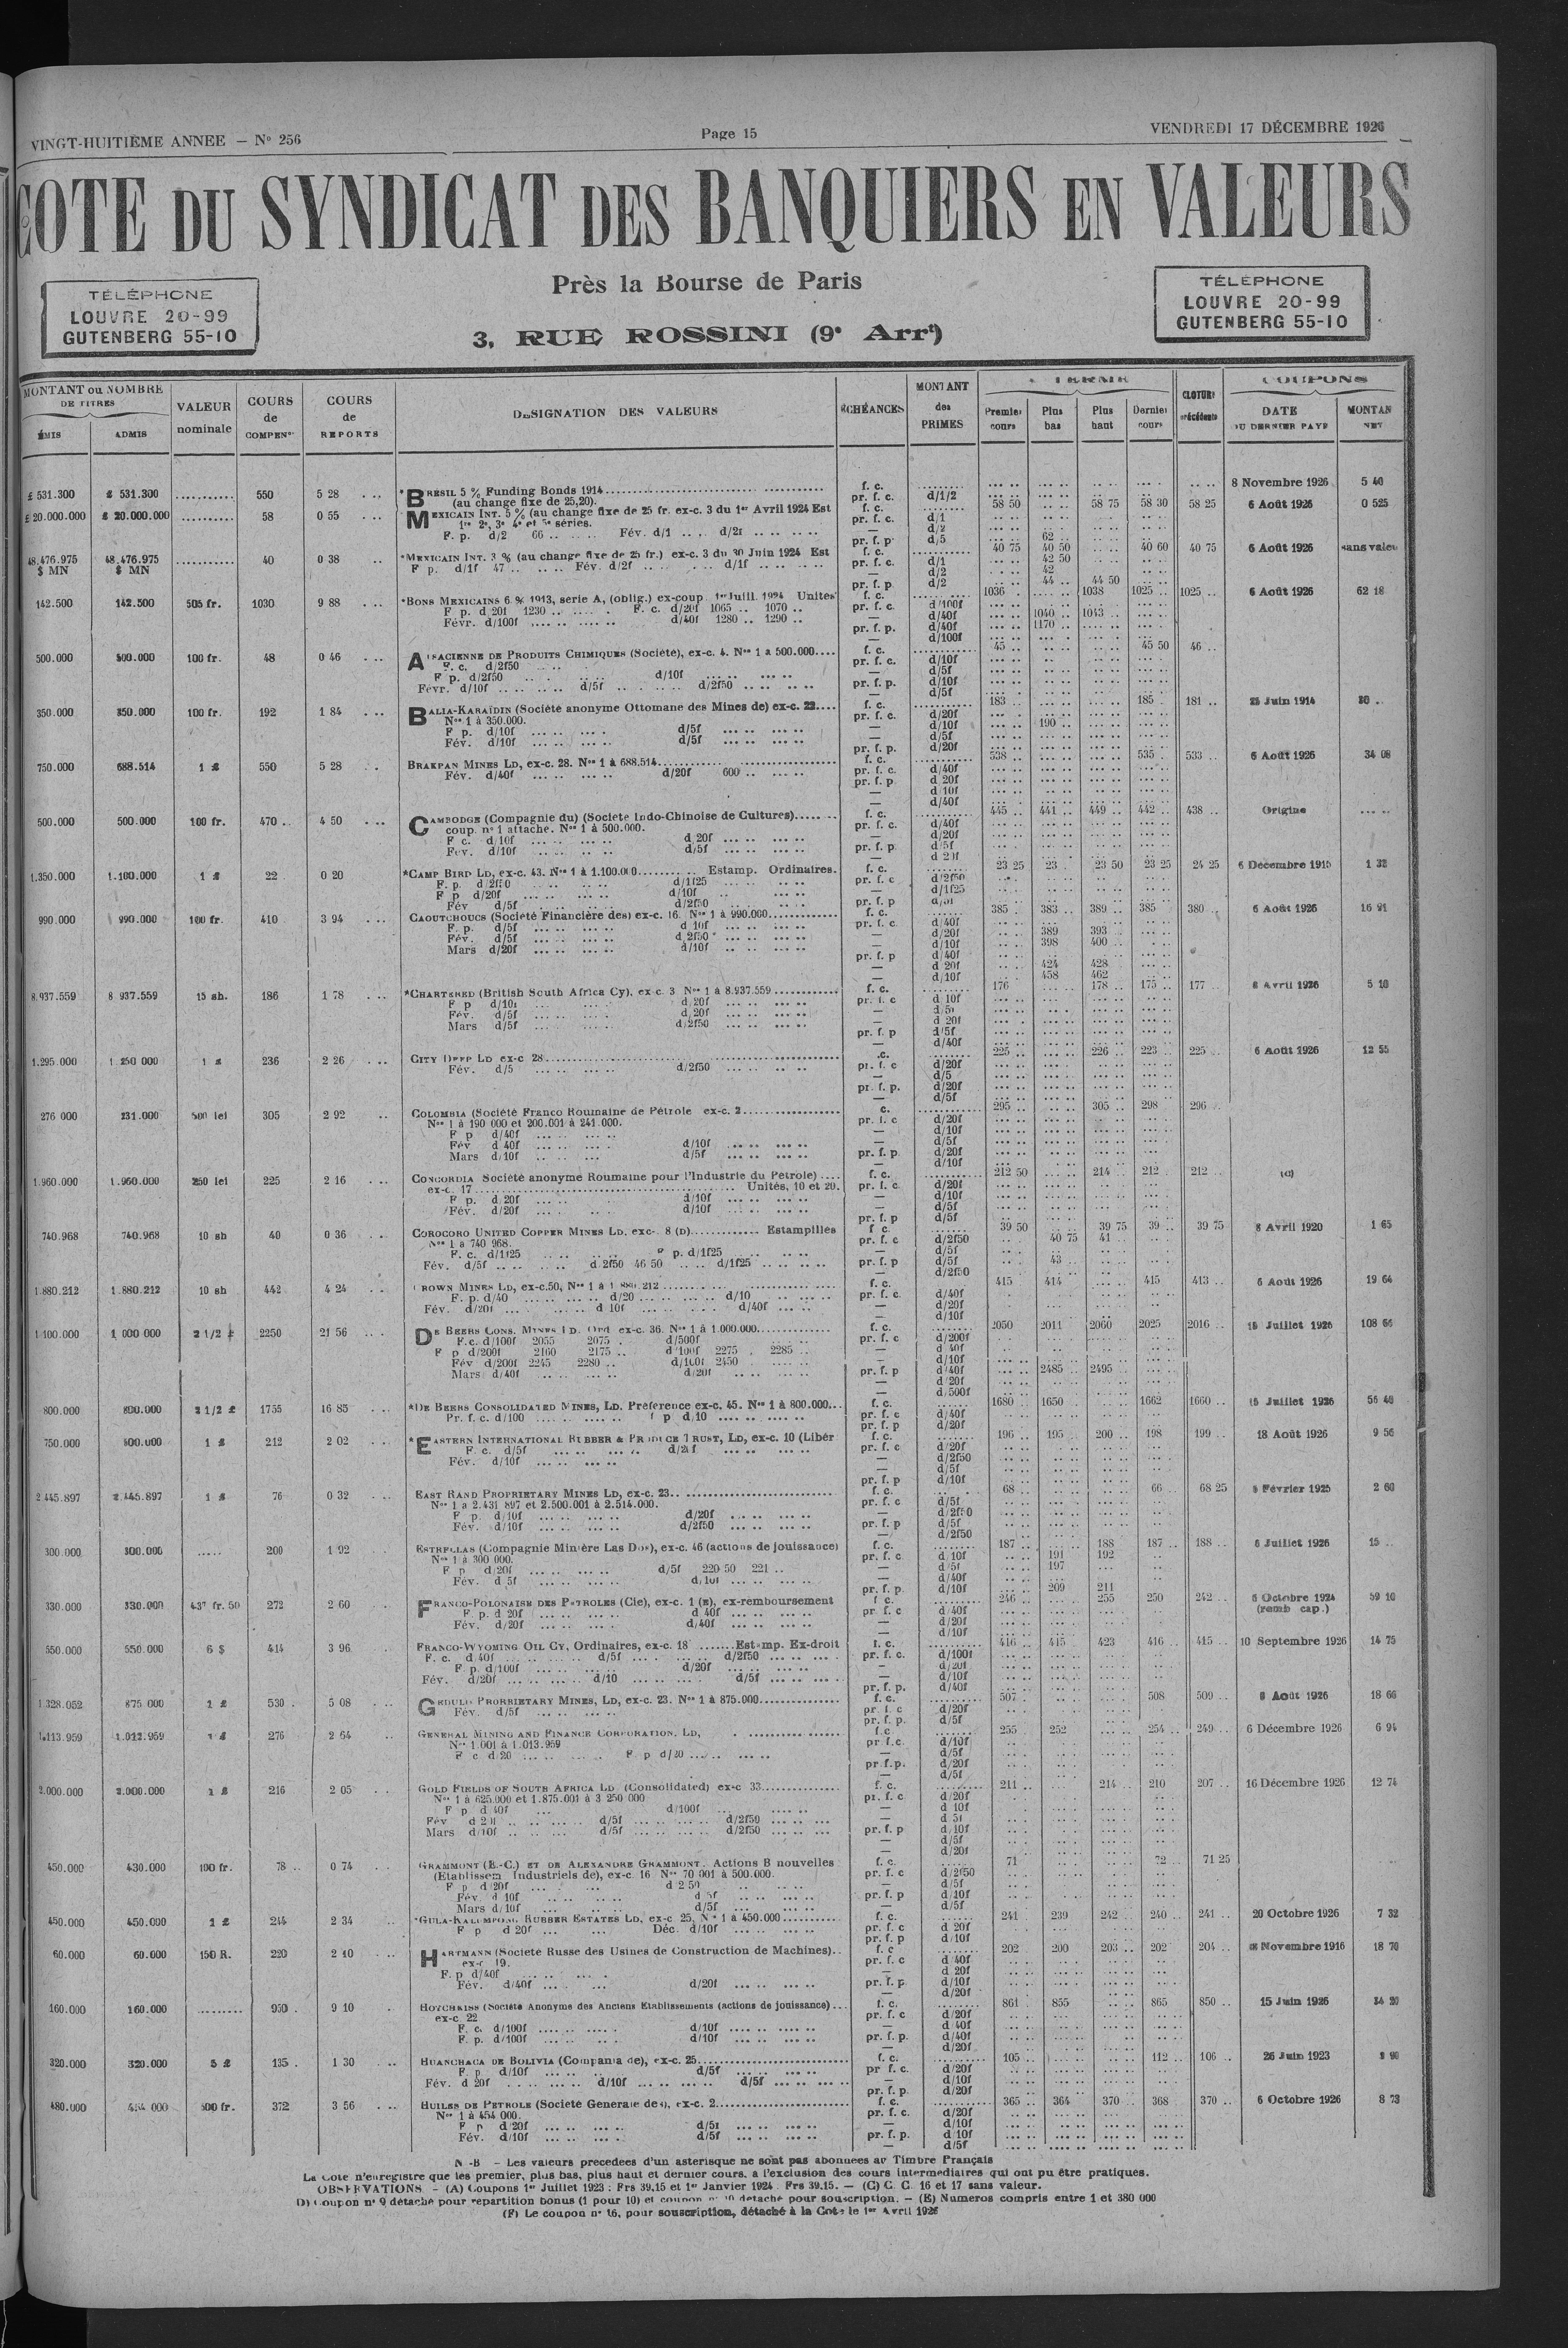 VINGT-HUITIÈME ANNEE — N° 256
Page 15
VENDREDI 17 DÉCEMBRE 1926
COTE DU SYNDICAT DES BANQUIERS EN VALEURS
Près la Bourse de Paris
3, RUE ROSSINI (9e Arrt)
TÉLÉPHONE
LOUVRE 20-99
GUTENBERG 55-10
TÉLÉPHONE
LOUVRE 20-99
GUTENBERG 55-10
MONTANT ou NOMBRE DE TITRES
ÉMIS ADMIS
VALEUR nominale
COURS de COMPENon
COURS de REPORTS
DESIGNATION DES VALEURS
ÉCHÉANCES
MONTANT des PRIMES
Premier cours Plus bas Plus haut Dernier cours
COUPONS
DATE DU DERNIER PAYÉ
NET
£ 531.300 £ 531.300 550 5 28 *BRÉSIL 5 % Funding Bonds 1914 f. c. 8 Novembre 1926 5 40
(au change fixe de 25,20). pr. f. c. d/1/2
£ 20.000.000 £ 20.000.000 58 0 55 MEXICAIN INT. 5 % (au change fixe de 25 fr. ex-c. 3 du 1er Avril 1924 Est f. c. 58 50 58 75 58 30 58 25 6 Août 1926 0 525
1re 2e, 3e 4e et 5e séries. pr. f. c. d/1
F. p. d/2 66 Fév. d/1 d/2f
pr. f. p. d/5 62
48.476.975 48.476.975 40 0 38 *MEXICAIN INT. 3 % (au change fixe de 25 fr.) ex-c. 3 du 30 Juin 1924 Est f. c. 40 75 40 50 40 60 40 75 6 Août 1926
$ MN $ MN F p. d/1f 47 Fév. d/2f d/1f pr. f. c. d/1 42 50
— d/2 42
pr. f. p. d/2 44 44 50
142.500 142.500 505 fr. 1030 9 88 *BONS MEXICAINS 6 % 1913, serie A, (oblig.) ex-coup 1er Juill. 1924 Unités f. c. 1036 1038 1025 1025 6 Août 1926 62 18
F p. d 20f 1230 F. c. d/20f 1065 1070 pr. f. c. d/100f
Févr. d/100f d/40f 1280 1290 — d/40f 1040 1043
pr. f. p. d/40f 1170
— d/100f
500.000 500.000 100 fr. 48 0 46 ALSACIENNE DE PRODUITS CHIMIQUES (Société), ex-c. 4. Nos 1 à 500.000 f. c. 45 45 50 46
F. c. d/2f50 pr. f. c. d/10f
F p. d/2f50 d/10f — d/5f
Févr. d/10f d/5f d/2f50 pr. f. p. d/10f
— d/5f
350.000 350.000 100 fr. 192 1 84 BALIA-KARAÏDIN (Société anonyme Ottomane des Mines de) ex-c. 22 f. c. 183 185 181 25 Juin 1914
Nos 1 à 350.000. pr. f. c. d/20f
F p. d/10f d/5f — d/10f 190
Fév. d/10f d/5f — d/5f
pr. f. p. d/20f
750.000 688.514 1 £ 550 5 28 BRAKPAN MINES LD, ex-c. 28. Nos 1 à 688.514 f. c. 538 535 533 6 Août 1926 34 08
Fév. d/40f d/20f 600 pr. f. c. d/40f
pr. f. p d 20f
— d 10f
— d/40f
500.000 500.000 100 fr. 470 4 50 CAMBODGE (Compagnie du) (Société Indo-Chinoise de Cultures) f. c. 445 441 449 442 438 Origine
coup. n° 1 attaché. Nos 1 à 500.000. pr. f. c. d/40f
F c. d/10f d 20f — d/20f
Fév. d/10f d/5f pr. f. p d/5f
1.350.000 1.100.000 1 £ 22 0 20 *CAMP BIRD LD, ex-c. 43. Nos 1 à 1.100.000 Estamp. Ordinaires. f. c. 23 25 23 23 50 23 25 24 25 6 Décembre 1915
F. p. d/2f50 d/1f25 pr. f. c d/2f50
F p d/20f d/10f — d/1f25
Fév d/5f d/2f50 pr. f. p d/5f
990.000 990.000 100 fr. 410 3 94 CAOUTCHOUCS (Société Financière des) ex-c. 16. Nos 1 à 990.000 f. c. 385 383 389 385 380 6 Août 1926 16 91
F. p. d/5f d 10f pr. f. c. d/40f
Fév. d/5f d 2f50 — d/20f 389 393
Mars d/20f d/10f — d/10f 398 400
pr. f. p d/40f
— d 20f 424 428
— d/10f 458 462
8.937.559 8 937.559 15 sh. 186 1 78 *CHARTERED (British South Africa Cy), ex-c. 3 Nos 1 à 8.937.559 f. c. 176 178 175 177 Avril 1926 5 10
F p d/10f d/20f pr. f. c d 10f
Fév. d/5f d 20f — d/5f
Mars d/5f d/2f50 — d 20f
pr. f. p d/5f
— d/40f
1.295.000 1.250 000 1 £ 236 2 26 CITY DEEP LD ex-c 28 225 226 223 225 6 Août 1926 12 55
Fév. d/5 d/2f50 pr. f. c d/20f
— d/5
pr. f. p. d/20f
— d/5f
276 000 231.000 500 lei 305 2 92 COLOMBIA (Société Franco Roumaine de Pétrole ex-c. 2 295 305 298 296
Nos 1 à 190 000 et 200.001 à 241.000. pr. f. c d/20f
F p d/40f — d/10f
Fév d 40f d/10f — d/5f
Mars d/10f d/5f pr. f. p. d/20f
— d/10f
1.960.000 1.960.000 250 lei 225 2 16 CONCORDIA Société anonyme Roumaine pour l'Industrie du Petrole) f. c. 212 50 214 212 212
ex-c. 17 Unités, 10 et 20. pr. f. c. d/20f
F p. d 20f d/10f — d/10f
Fév. d/20f d/10f — d/5f
pr. f. p d/5f
740.968 740.968 10 sh 40 0 36 COROCORO UNITED COPPER MINES LD, ex-c. 8 (D) Estampillés f c. 39 50 39 75 39 39 75 8 Avril 1920 1 65
Nos 1 a 740 968. pr. f. c d/2f50 40 75 41
F. c. d/1f25 F p. d/1f25 — d/5f
Fév. d/5f d 2f50 46 50 d/1f25 pr. f. p d/5f 43
— d/2f50
1.880.212 1.880.212 10 sh 442 4 24 CROWN MINES LD, ex-c.50, Nos 1 à 1 880.212 f. c. 415 414 415 413 6 Août 1926 19 64
F. p. d/40 d/20 d/10 pr. f. c. d/40f
Fév. d/20f d 10f d/40f — d/20f
— d/10f
1 100.000 1 000 000 2 1/2 £ 2250 21 56 DE BEERS CONS. MINES LD. Ord ex-c. 36. Nos 1 à 1.000.000 f. c. 2050 2011 2060 2025 2016 15 Juillet 1926 108 66
F.c. d/100f 2055 2075 d/500f pr. f. c d/200f
F p d/200f 2160 2175 d/100f 2275 2285 — d 40f
Fév d/200f 2245 2280 d/100f 2450 — d/10f
Mars d/40f d/20f pr. f. p d/40f 2485 2495
— d/20f
— d/500f
800.000 800.000 2 1/2 £ 1755 16 85 *DE BEERS CONSOLIDATED MINES, LD. Préférence ex-c. 45. Nos 1 à 800.000 f. c. 1680 1650 1662 1660 15 Juillet 1926
Pr. f. c. d/100 f p d/10 pr. f. c d/40f
pr. f. p d/20f
750.000 500.000 1 £ 212 2 02 *EASTERN INTERNATIONAL RUBBER & PRODUCE TRUST, LD, ex-c. 10 (Libér f. c. 196 195 200 198 199 18 Août 1926 9 56
F. c. d/5f d/20f pr. f. c d/20f
Fév. d/10f — d/2f50
— d/5f
pr. f. p d/10f
2 445.897 2.445.897 1 £ 76 0 32 EAST RAND PROPRIETARY MINES LD, ex-c. 23 f. c. 68 66 68 25 Février 1925 2 60
Nos 1 a 2.431 897 et 2.500.001 à 2.514.000. pr. f. c d/5f
F p. d/10f d/20f — d/2f50
Fév. d/10f d/2f50 pr. f. p d/5f
— d/2f50
300.000 300.000 200 1 92 ESTRELLAS (Compagnie Minière Las Dos), ex-c. 46 (actions de jouissance) f. c. 187 188 187 188 6 Juillet 1926 15
Nos 1 à 300 000. pr. f. c d/10f 191 192
F p d/20f d/5f 220 50 221 — d/5f 197
Fév. d 5f d/10f — d/40f
pr. f. p. d/10f 209 211
330.000 330.000 437 fr. 50 272 2 60 FRANCO-POLONAISE DES PÉTROLES (Cie), ex-c. 1 (E), ex-remboursement f c. 246 255 250 242 Octobre 1924 59 10
F. p. d 20f d 40f pr. f. c d/40f (remb cap.)
Fév. d/20f d/40f — d/20f
— d/10f
550.000 550.000 6 $ 414 3 96 FRANCO-WYOMING OIL CY, Ordinaires, ex-c. 18 Estamp. Ex-droit f. c. 416 415 423 416 415 10 Septembre 1926 14 75
F. c. d 40f d/5f d/2f50 pr. f. c. d/100f
F p. d/100f d/20f — d/20f
Fév. d/20f d/10 d/5f — d/10f
pr. f. p. d/40f
1 328.052 875 000 1 £ 530 5 08 GEDULD PRORRIETARY MINES, LD, ex-c. 23. Nos 1 à 875.000 f. c. 507 508 509 Août 1926 18 66
Fév. d/5f pr. f. c d/20f
pr. f. p. d/5f
1.113.959 1.013.959 1 £ 276 2 64 GENERAL MINING AND FINANCE CORPORATION, LD, f. c 255 252 254 249 6 Décembre 1926 6 94
Nos 1.001 à 1.013.959 pr f.c. d/10f
F c d 20 F p d/20 — d/5f
pr f.p. d/20f
— d/5f
2.000.000 2.000.000 1 £ 216 2 05 GOLD FIELDS OF SOUTH AFRICA LD (Consolidated) ex-c 33 f. c. 211 214 210 207 16 Décembre 1926 12 74
Nos 1 à 625.000 et 1.875.001 à 3 250 000 pr. f. c d/20f
F p. d 40f d/100f — d 10f
Fév d 20f d/5f d/2f50 — d 5f
Mars d/10f d/5f d/2f50 pr. f. p d/10f
— d/5f
— d/20f
450.000 430.000 100 fr. 78 0 74 GRAMMONT (E.-C.) ET DE ALEXANDRE GRAMMONT. Actions B nouvelles f. c. 71 72 71 25
(Etablissem Industriels de), ex-c. 16 Nos 70 001 à 500.000. pr. f. c d/2f50
F p d/20f d 2 50 — d/5f
Fév. d 10f d 5f pr. f. p d/10f
Mars d/10f d/5f — d/5f
450.000 450.000 1 £ 244 2 34 *GULA-KALUMPONG RUBBER ESTATES LD, ex-c 25, Nos 1 à 450.000 f. c. 241 239 242 240 241 20 Octobre 1926 7 32
F p d 20f Déc. d/10f pr. f. c d 20f
pr. f. p d/10f
60.000 60.000 150 R. 220 2 10 HARTMANN (Société Russe des Usines de Construction de Machines) f. c 202 200 203 202 204 Novembre 1916 18 70
ex-c 19. pr. f. c d 40f
F. p d/40f — d 20f
Fév. d/40f d/20f pr. f. p. d/10f
— d/20f
160.000 160.000 950 9 10 HOTCHKISS (Société Anonyme des Anciens Etablissements (actions de jouissance) f. c. 861 855 865 850 15 Juin 1926 34 20
ex-c. 22 pr. f. c d/20f
F. c. d/100f d/10f — d 40f
F. p. d/100f d/10f pr. f. p. d/40f
— d/20f
320.000 320.000 5 £ 135 1 30 HUANCHACA DE BOLIVIA (Compania de), ex-c. 25 f. c. 105 112 106 26 Juin 1923
F p. d/10f d/5f pr f. c. d/20f
Fév. d 20f d/10f d/5f — d/10f
pr. f. p. d/20f
480.000 454 000 500 fr. 372 3 56 HUILES DE PETROLE (Société Generale des), ex-c. 2 f. c. 365 364 370 368 370 6 Octobre 1926 8 73
Nos 1 à 454 000. pr. f. c. d/20f
F p d/20f d/5f — d/10f
Fév. d/10f d/5f pr. f. p. d/10f
— d/5f
N.-B — Les valeurs precedees d'un asterisque ne sont pas abonnées au Timbre Français
La Cote n'enregistre que les premier, plus bas, plus haut et dernier cours, a l'exclusion des cours intermediaires qui ont pu être pratiqués.
OBSERVATIONS. — (A) Coupons 1er Juillet 1923 : Frs 39,15 et 1er Janvier 1924 Frs 39.15. — (C) C. C. 16 et 17 sans valeur.
D) Coupon n° 9 détaché pour repartition bonus (1 pour 10) et coupon n° 10 detaché pour souscription. — (E) Numeros compris entre 1 et 380 000
(F) Le coupon n° 16, pour souscription, détaché à la Cote le 1er Avril 1926